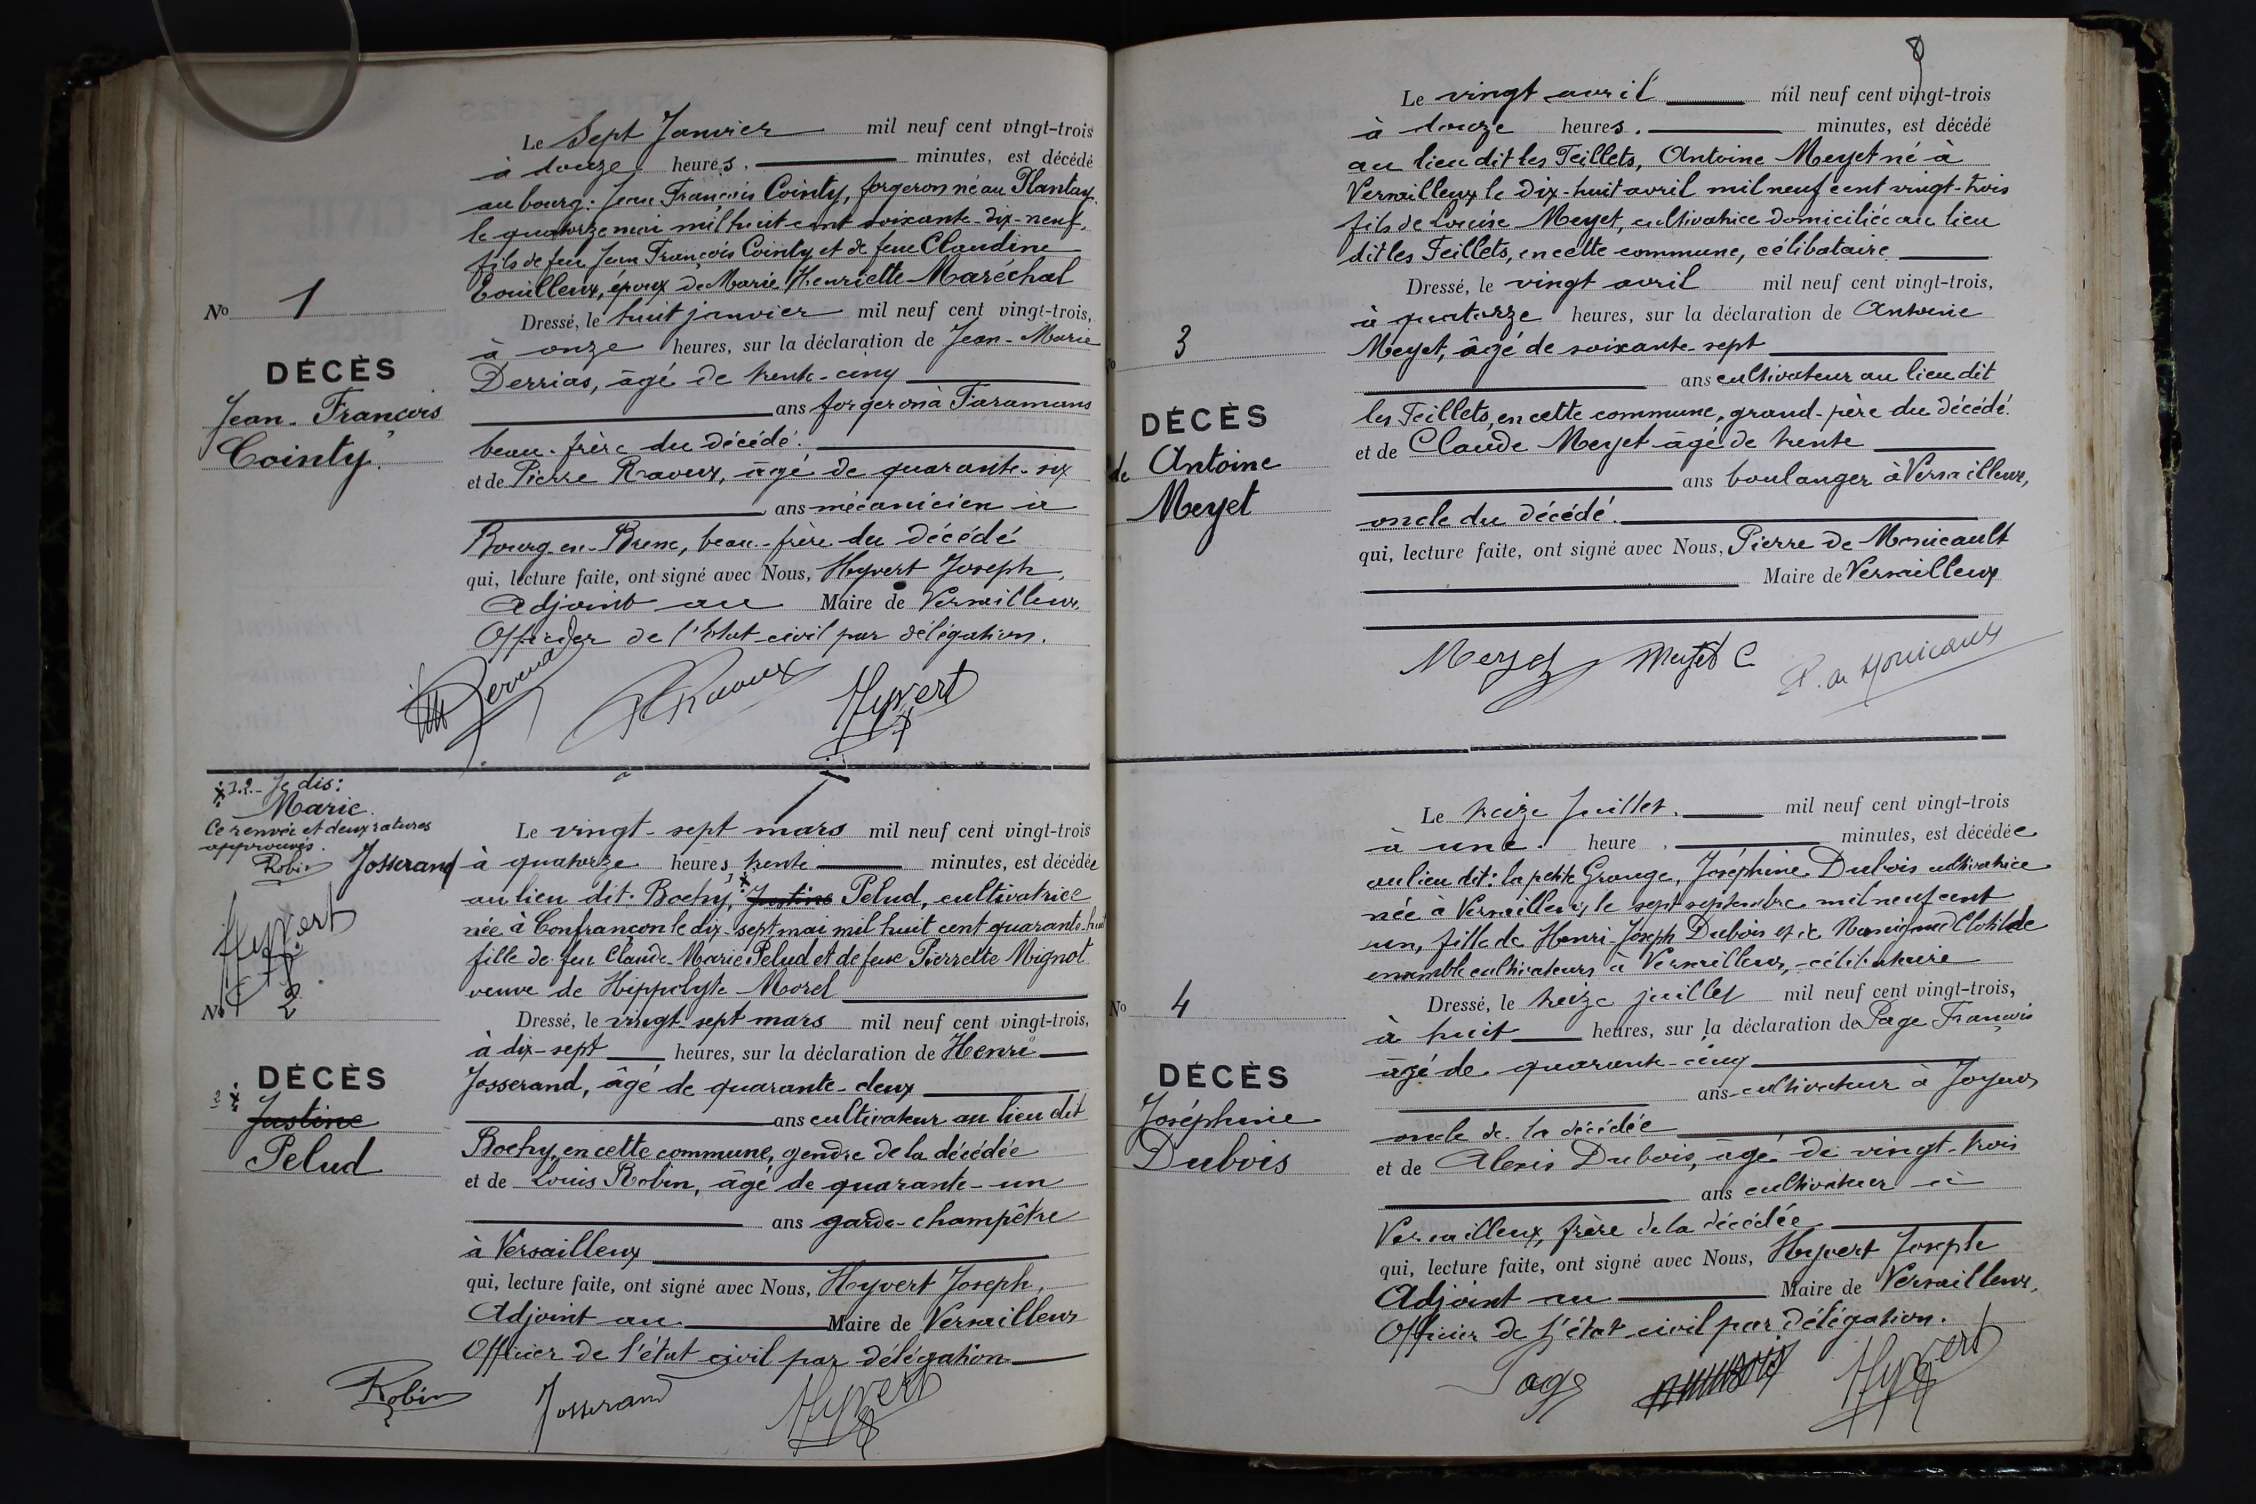 Le Sept Janvier mil neuf cent vingt-trois
à douze heures. minutes, est décédé
au bourg: Jean François Cointy, forgeron né au Plantay
le quatorze mai mil huit cent soixante-dix-neuf,
fils de feu Jean François Cointy et de feue Claudine
époux de Marie Henriette Maréchal
Dressé, le huit janvier mil neuf cent vingt-trois,
à onze heures, sur la déclaration de Jean-Marie
Derrias, âgé de trente-cinq
ans forgeron à Faramans
beau-frère du décédé.
et de Pierre Raveux, âgé de quarante-six
ans mécanicien à
Bourg-en-Bresse, beau-frère du décédé
qui, lecture faite, ont signé avec Nous, Hyvert Joseph,
Adjoint au Maire de Versailleux
Officier de l'Etat civil par délégation.
Raveux Hyvert
No 1
DÉCÈS
Jean-François
Cointy.
Je dis:
Marie.
Ce renvoi et deux ratures
approuvés.
Robin Josserand
Hyvert
No 2
DÉCÈS
2 Justine
Pelud
Le vingt-sept mars mil neuf cent vingt-trois
à quatorze heures trente minutes, est décédée
au lieu dit: Bochy, Justine Pelud, cultivatrice
née à Confrançon le dix-sept mai mil huit cent quarante-huit
fille de feu Claude-Marie Pelud et de feue Pierrette Mignot
veuve de Hippolyte Morel
Dressé, le vingt-sept mars mil neuf cent vingt-trois,
à dix-sept heures, sur la déclaration de Henri
Josserand, âgé de quarante-deux
ans cultivateur au lieu dit
Bochy, en cette commune, gendre de la décédée
et de Louis Robin, âgé de quarante-un
ans garde-champêtre
à Versailleux
qui, lecture faite, ont signé avec Nous, Hyvert Joseph,
Adjoint au Maire de Versailleux
Officier de l'état civil par délégation
Robin Josserand Hyvert
8
Le vingt avril mil neuf cent vingt-trois
à douze heures. minutes, est décédé
au lieu dit les Teillets, Antoine Meyet né à
Versailleux le dix-huit avril mil neuf cent vingt-trois
fils de Louise Meyet, cultivatrice domiciliée au lieu
dit les Teillets, en cette commune, célibataire
Dressé, le vingt avril mil neuf cent vingt-trois,
à quatorze heures, sur la déclaration de Antoine
Meyet, âgé de soixante-sept
ans cultivateur au lieu dit
les Teillets, en cette commune, grand-père du décédé.
et de Claude Meyet âgé de trente
ans boulanger à Versailleux,
oncle du décédé.
qui, lecture faite, ont signé avec Nous, Pierre de Monicault
Maire de Versailleux
Meyet Meyet C P. de Monicault
No 3
DÉCÈS
de Antoine
Meyet
Le treize juillet. mil neuf cent vingt-trois
à une. heure. minutes, est décédée
au lieu dit: la petite Grange, Joséphine Dubois cultivatrice
née à Versailleux, le sept septembre mil neuf cent
un, fille de Henri-Joseph Dubois et de Clotilde
ensemble cultivateurs à Versailleux, célibataire
Dressé, le treize juillet mil neuf cent vingt-trois,
à huit heures, sur la déclaration de Page François
âgé de quarante-cinq
ans cultivateur à Joyeux
oncle de la décédée
et de Alexis Dubois, âgé de vingt-trois
ans cultivateur à
Versailleux, frère de la décédée
qui, lecture faite, ont signé avec Nous, Hyvert Joseph
Adjoint au Maire de Versailleux,
Officier de l'état civil par délégation.
Page Hyvert
No 4
DÉCÈS
Joséphine
Dubois